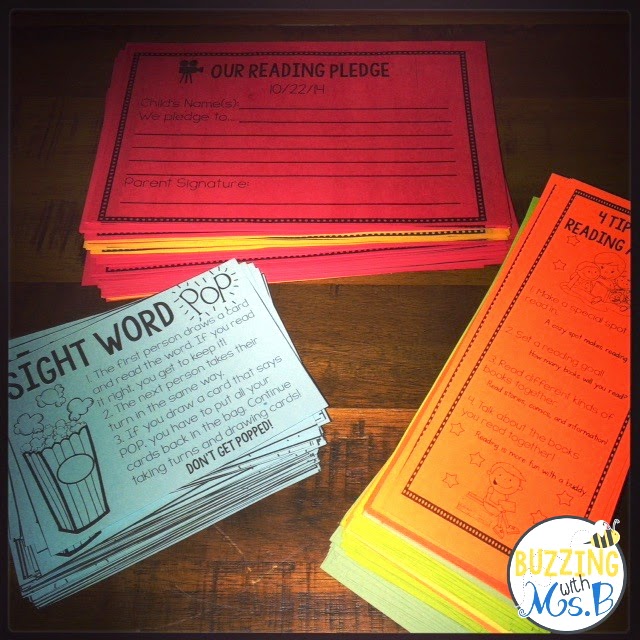 OUR READING PLEDGE
10/22/14
Child's Name(s):
We pledge to...
Parent Signature:
SIGHT WORD POP
1. The first person draws a card
and read the word. If you read
it right, you get to keep it!
2. The next person takes their
turn in the same way.
3. If you draw a card that says
POP, you have to put all your
cards back in the bag. Continue
taking turns and drawing cards!
DON'T GET POPPED!
4 TIP
READING
1. Make a special spot
read in.
A cozy spot makes reading
2. Set a reading goal!
How many books will you read?
3. Read different kinds of
books together.
Read stories, comics, and information!
4. Talk about the books
you read together!
Reading is more fun with a buddy
BUZZING
with
Ms. B